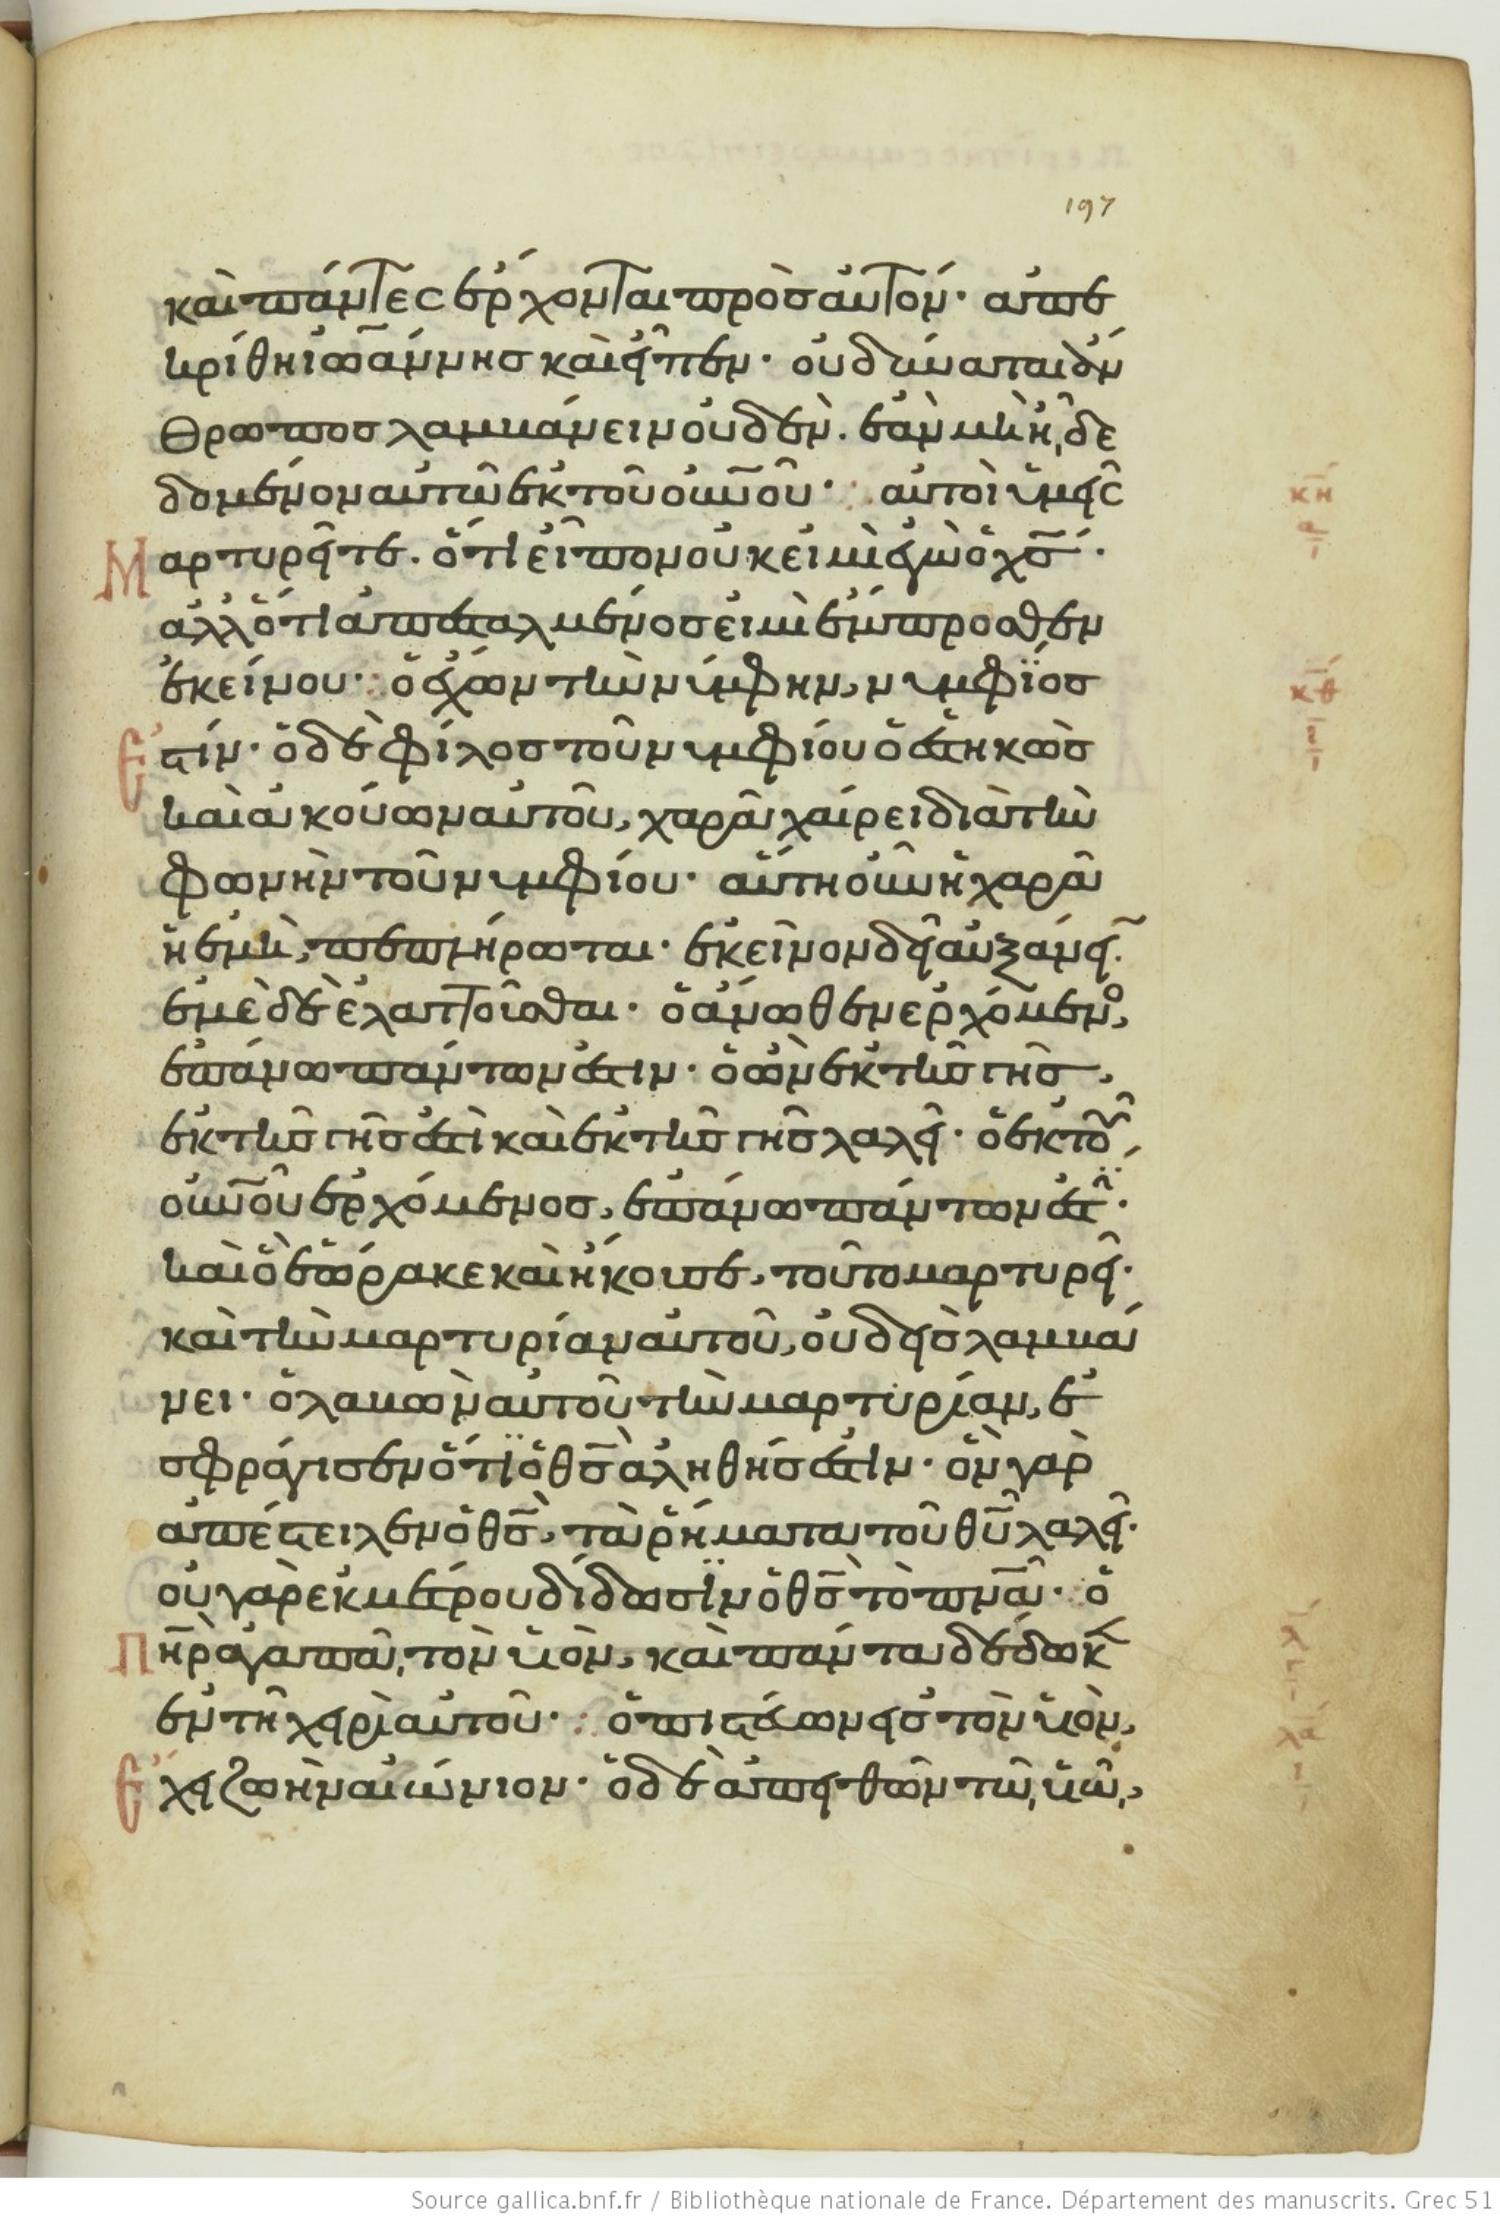 197
καὶ πάντες ἔρχονται πρὸς αὐτόν· ἀπε
κρίθη ἰωάννης καὶ εἶπεν· οὐ δύναται ἄν
θρωπος λαμβάνειν οὐδὲν. ἐὰν μὴ ἦ δε
δομένον αὐτῶ ἐκ τοῦ οὐνοῦ· αὐτοὶ ὑμεῖς
Μαρτυρεῖτε. ὅτι εἶπον οὐκ εἰμὶ ἐγὼ ὁ χς·
ἀλλ' ὅτι ἀπεσταλμένος εἰμὶ ἔμπροσθεν
ἐκείνου· ὁ ἔχων τὴν νύμφην, νυμφίος
Ἐστίν· ὁ δὲ φίλος τοῦ νυμφίου ὁ ἑστηκὼς
καὶ ἀκούων αὐτοῦ, χαρᾶ χαίρει διὰ τὴν
φωνὴν τοῦ νυμφίου· αὕτη οὖν ἡ χαρὰ
ἡ ἐμὴ, πεπλήρωται· ἐκεῖνον δεῖ αὐξάνειν.
ἐμὲ δὲ ἐλαττοῦσθαι· ὁ ἄνωθεν ἐρχόμενος,
ἐπάνω πάντων ἐστιν· ὁ ὢν ἐκ τῆς γῆς,
ἐκ τῆς γῆς ἐστὶ καὶ ἐκ τῆς γῆς λαλεῖ· ὁ ἐκ τοῦ,
οὐνοῦ ἐρχόμενος, ἐπάνω πάντων ἐστί·
καὶ ὃ ἑώρακε καὶ ἤκουσε, τοῦτο μαρτυρεῖ·
καὶ τὴν μαρτυρίαν αὐτοῦ, οὐδεὶς λαμβά
νει· ὁ λαβὼν αὐτοῦ τὴν μαρτυρίαν, ἐ
σφράγισεν ὅτι ὁ θς ἀληθής ἐστιν· ὃν γὰρ
ἀπέστειλεν ὁ θς, τὰ ῥήματα τοῦ θυ λαλεῖ·
οὐ γὰρ ἐκ μέτρου δίδωσιν ὁ θς τὸ πνα· ὁ
Πηρ ἀγαπᾶ, τὸν υἱὸν, καὶ πάντα δέδωκεν
ἐν τῆ χειρὶ αὐτοῦ· ὁ πιστεύων εἰς τὸν υἱὸν,
Ἔχει ζωὴν αἰώνιον· ὁ δὲ ἀπειθῶν τῶ, υἱῶ,
κη
α
κθ
ι
λ
γ
λα
ι
Source gallica.bnf.fr / Bibliothèque nationale de France. Département des manuscrits. Grec 51